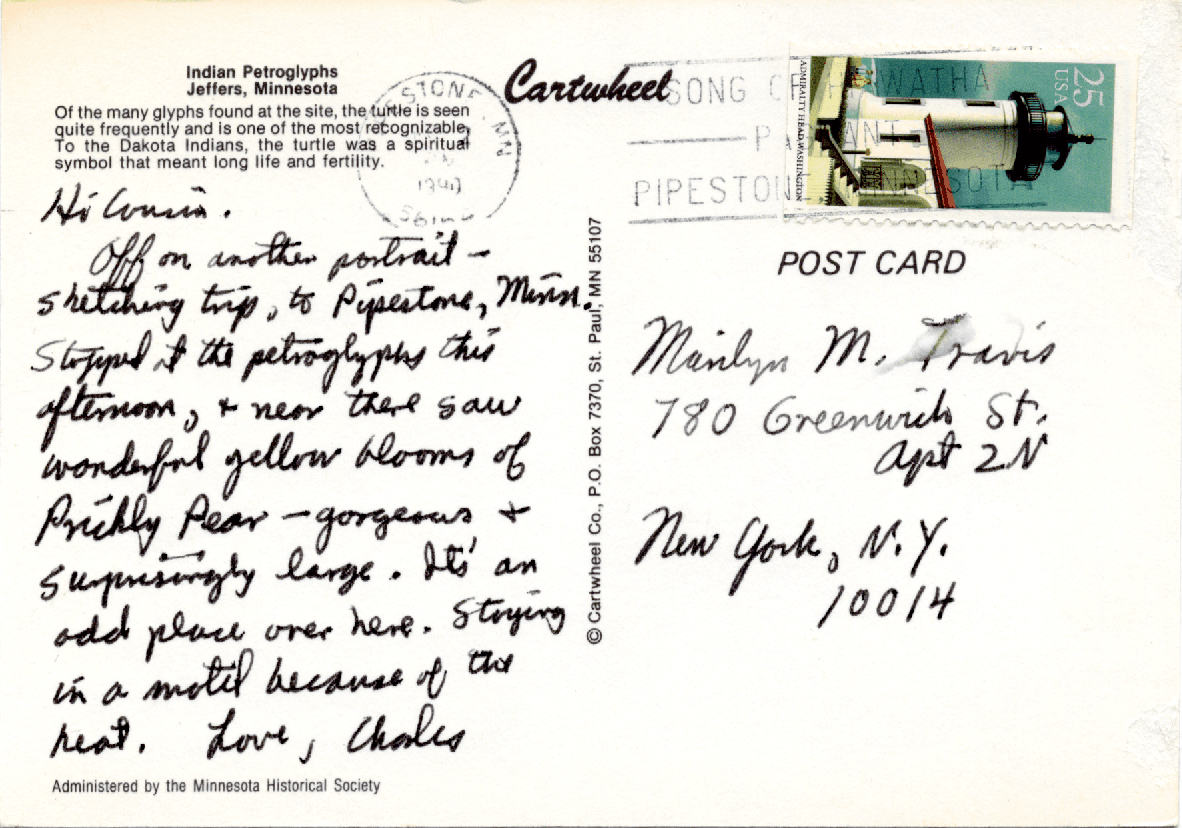 Indian Petroglyphs
Jeffers, Minnesota
Of the many glyphs found at the site, the turtle is seen
quite frequently and is one of the most recognizable.
To the Dakota Indians, the turtle was a spiritual
symbol that meant long life and fertility.
Hi Cousin.
Off on another portrait-
sketching trip, to Pipestone, Minn.
Stopped at the petroglyphs this
afternoon, & near there saw
wonderful yellow blooms of
Prickly Pear – gorgeous &
surprisingly large. It's an
odd place over here. Staying
in a motel because of the
heat. Love, Charles
Administered by the Minnesota Historical Society
Cartwheel
© Cartwheel Co., P.O. Box 7370, St. Paul, MN 55107
STONE, MN
SONG OF HIAWATHA
PAGEANT
PIPESTONE MINNESOTA
25
USA
ADMIRALTY HEAD, WASHINGTON
POST CARD
Marilyn M. Travis
780 Greenwich St.
Apt 2N
New York, N.Y.
10014